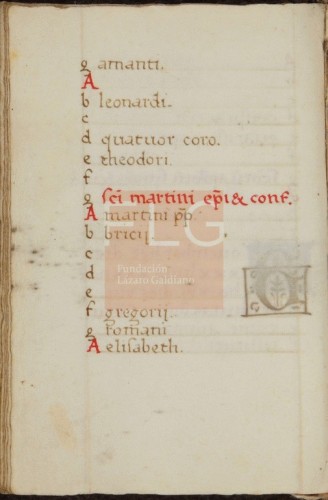 g amanti.
A
b leonardi.
c
d quatuor coro.
e theodori.
f
g sci martini epi & conf.
A martini pp.
b bricij.
c
d
e
f gregorij.
g romani
A elisabeth.
FLG
Fundación
Lázaro Galdiano